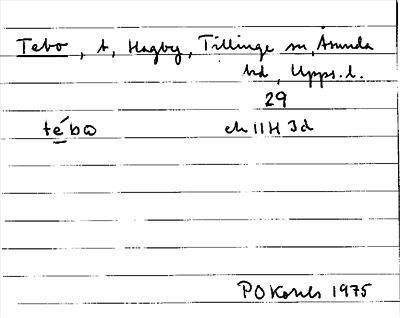 Tebo, t, Hagby, Tillinge sn, Åsunda
hd, Upps.l.
29
te´bω ek 11H 3d
POKarls 1975